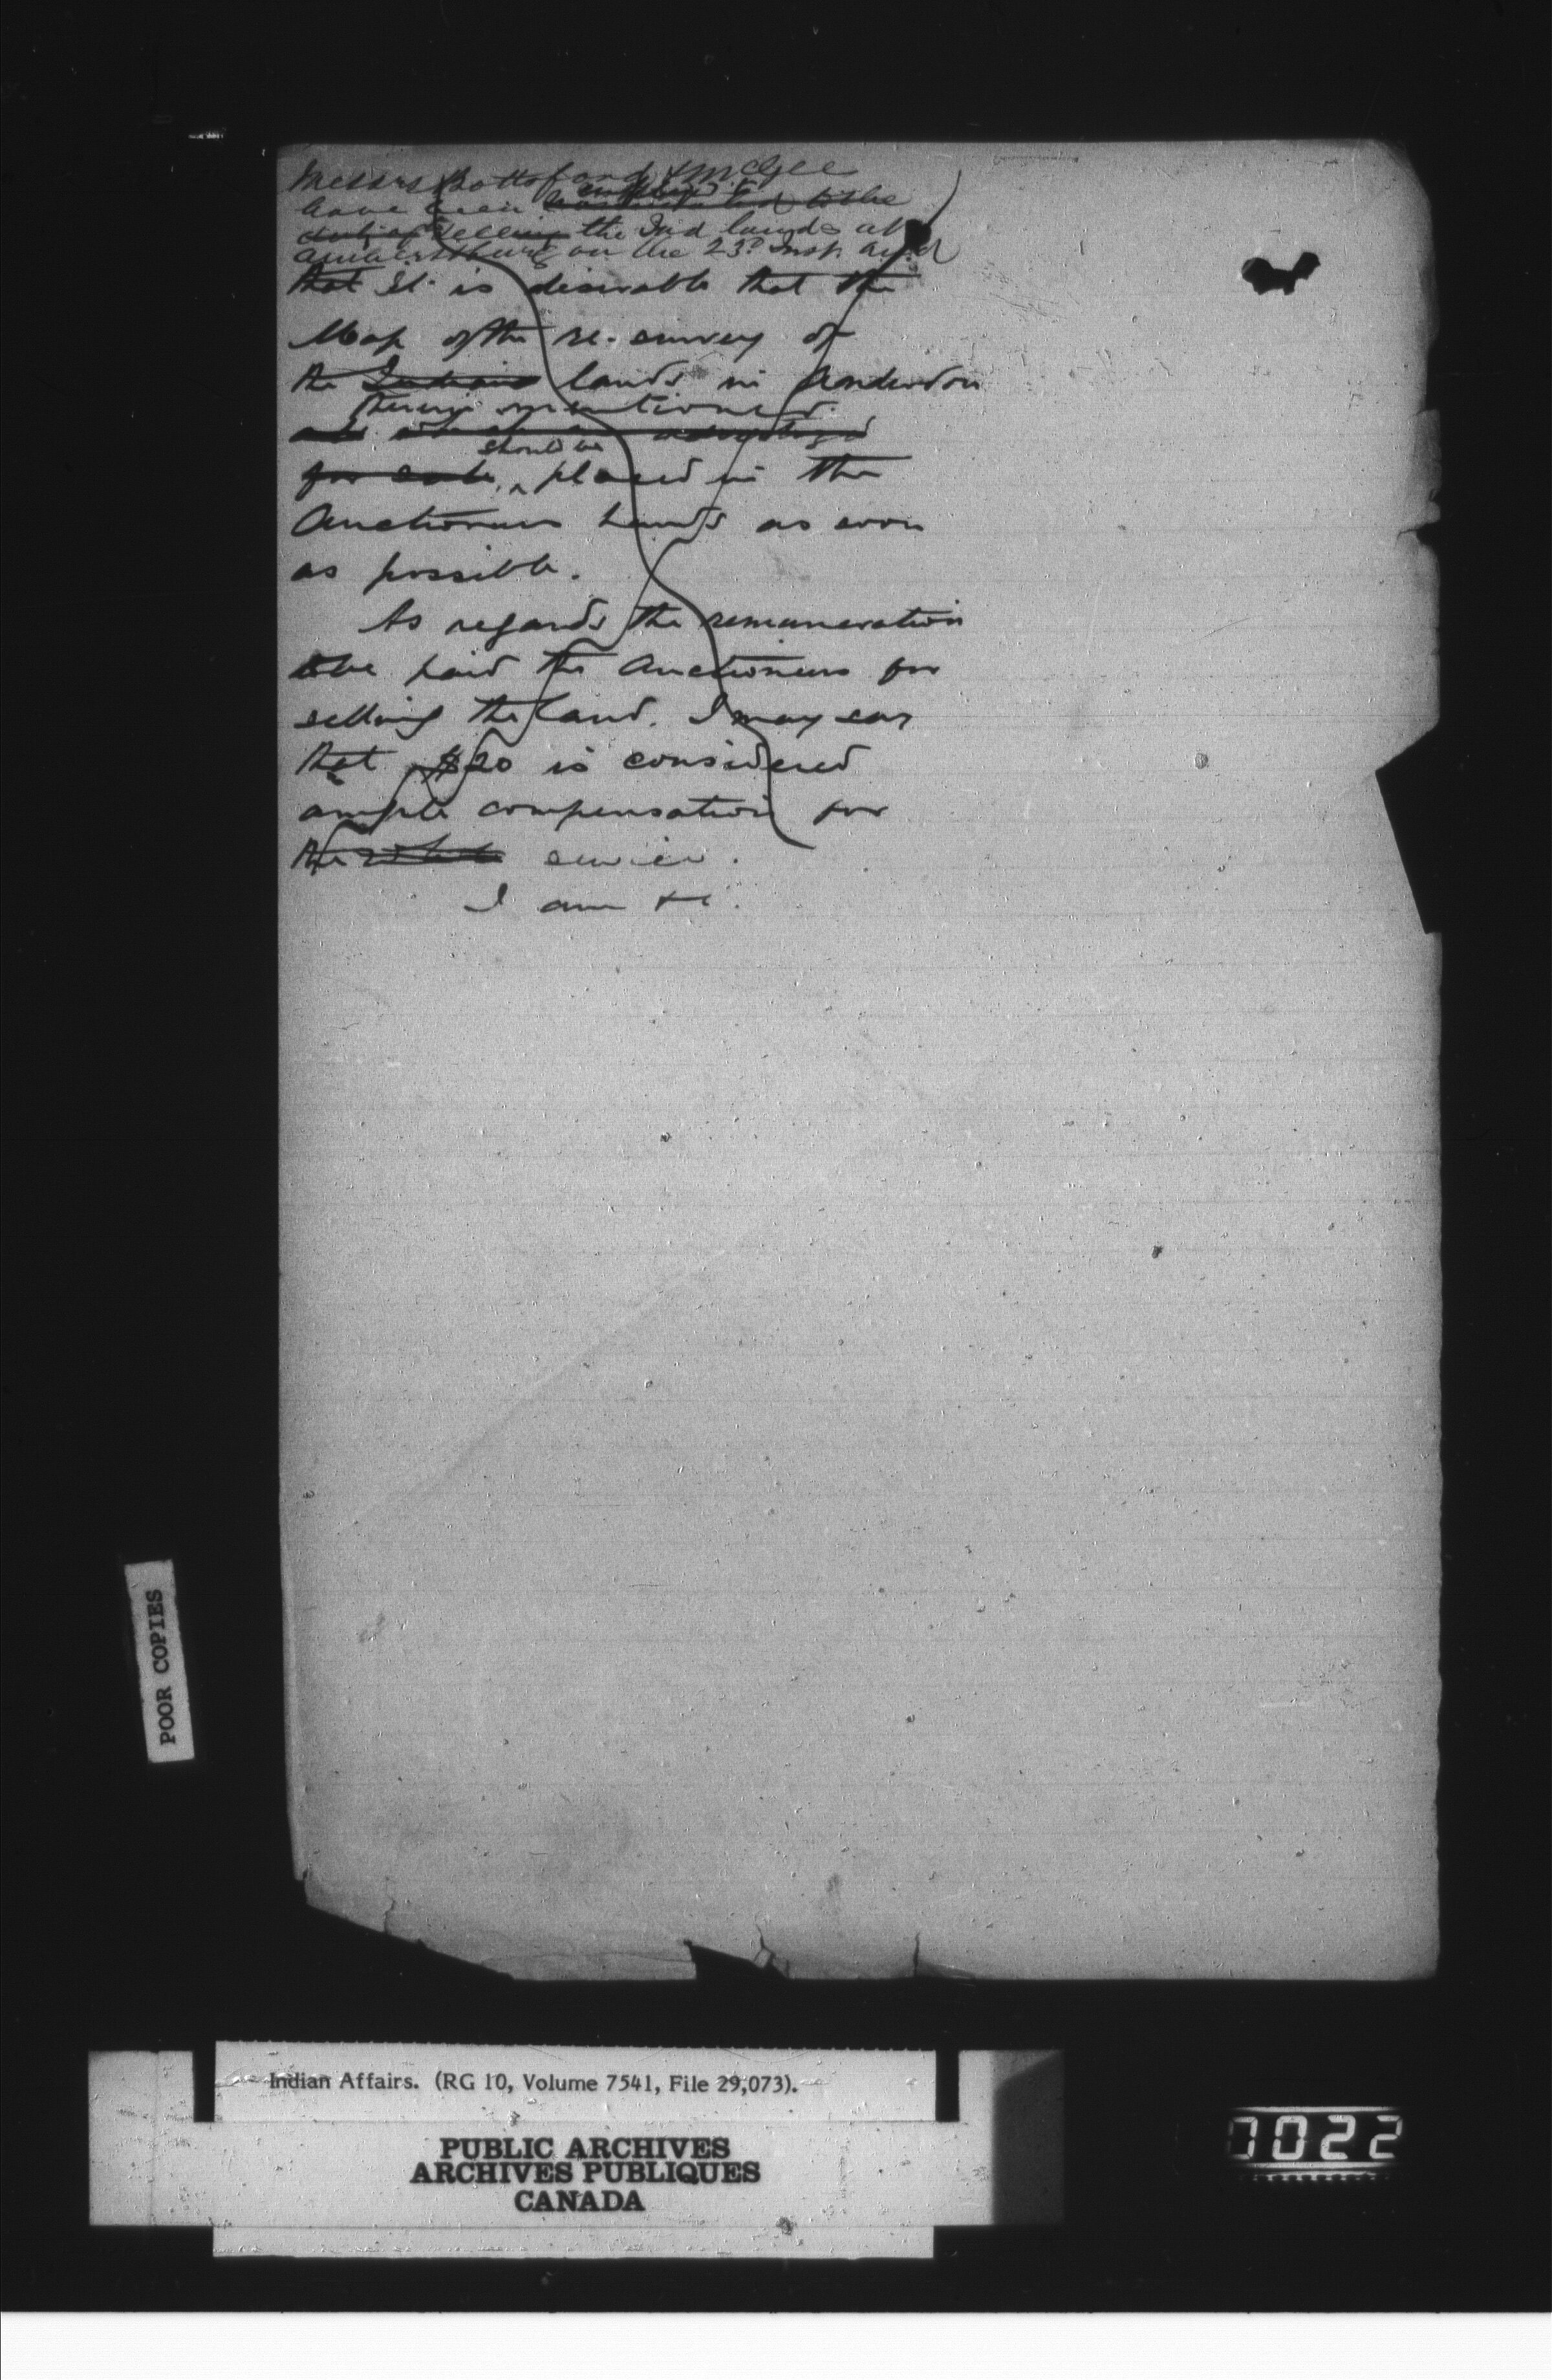 Messrs Bottsford & McGee
employed to
have been nominated to the
duty of selling the Ind lands at
Amherstburg on the 23rd Inst. and
that It is desirable that the
Map of the re-survey of
the Indian lands in Anderdon
therein mentioned.
advertized
should be
for sale, ^ placed in the
Auctioneers hands as soon
as possible.
As regards the remuneration
to be paid the Auctioneers for
selling the land. I may say
that $20 is considered
ample compensation for
the whole service.
I am &c.
POOR COPIES
Indian Affairs. (RG 10, Volume 7541, File 29,073).
PUBLIC ARCHIVES
ARCHIVES PUBLIQUES
CANADA
0022